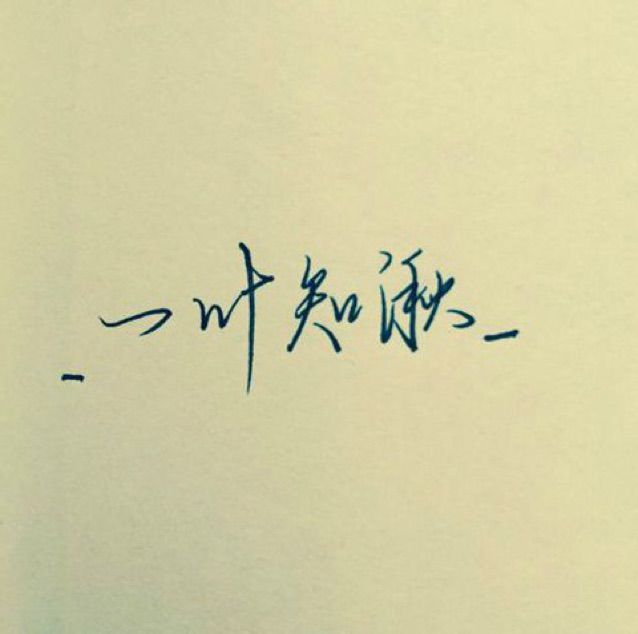 _一叶知湫_